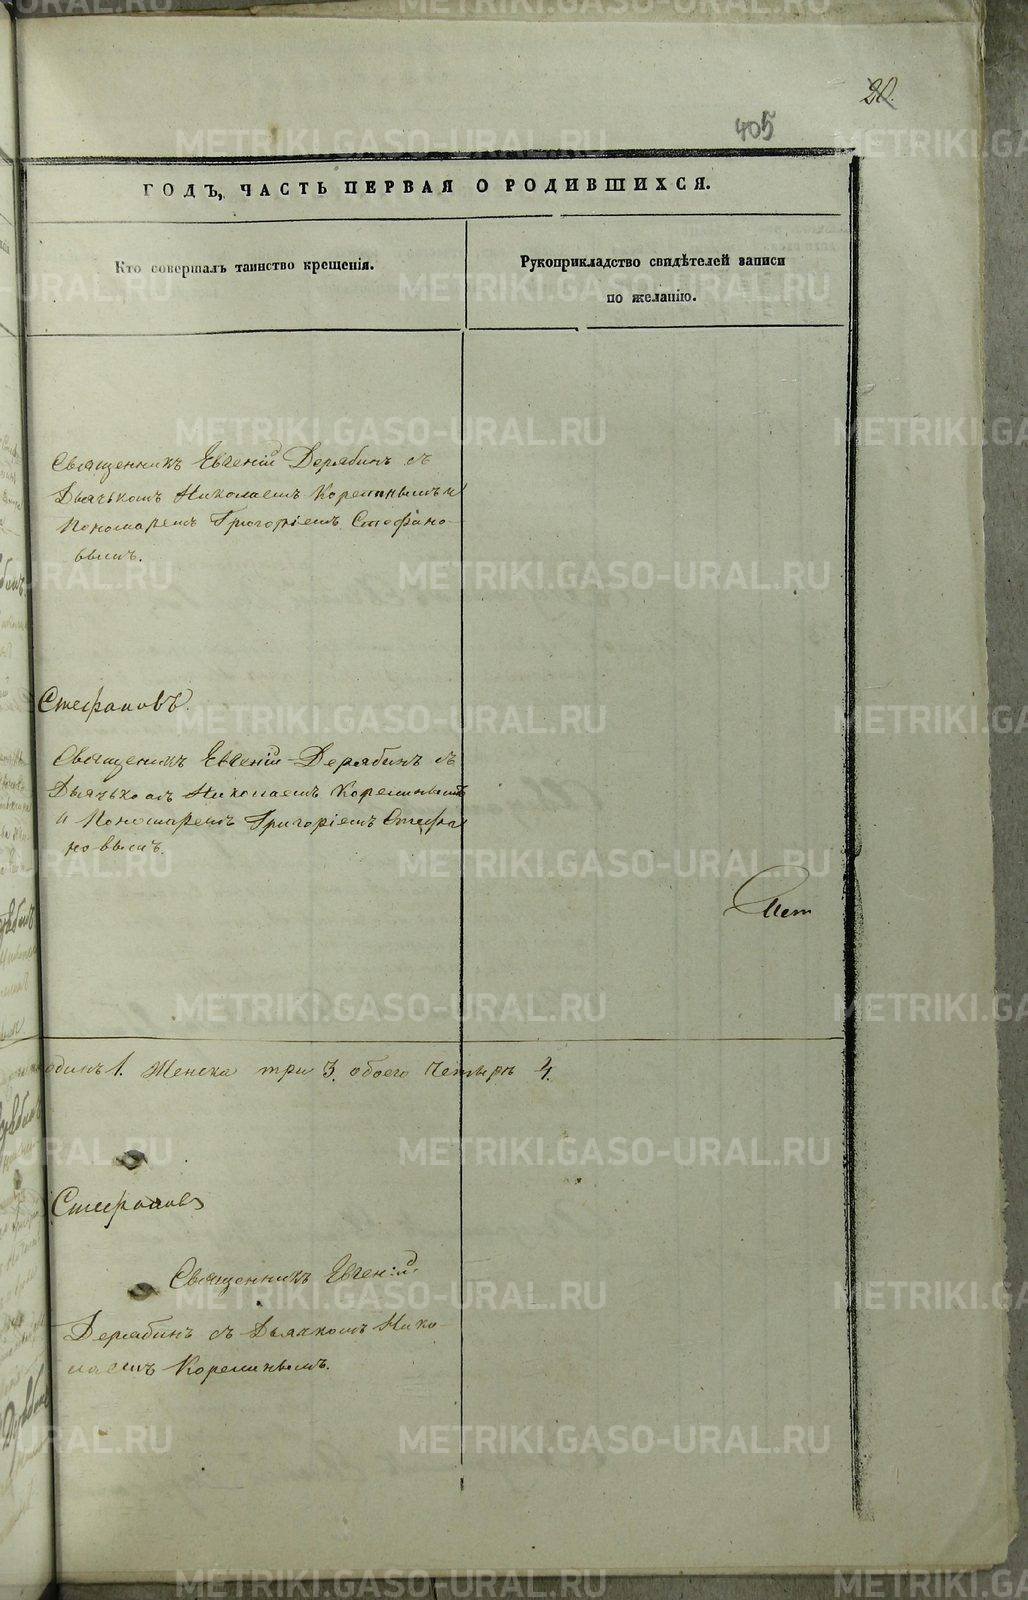 20.
405
ГОДЪ, ЧАСТЬ ПЕРВАЯ О РОДИВШИХСЯ.
Кто совершалъ таинство крещенія.
Рукоприкладство свидѣтелей записи
по желанію.
Священникъ Евгеній Дерябинъ съ
Дьячкомъ Николаемъ Корелинымъ и
Пономаремъ Григоріемъ Стефано-
вымъ.
Стефановъ.
Священникъ Евгеній Дерябинъ съ
Дьячькомъ Николаемъ Корелинымъ
и Пономаремъ Григоріемъ Стефа
новымъ.
одинъ 1. Женска три 3. обоего Четырѣ 4.
Стефановъ
Священникъ Евгеній
Дерябинъ съ Дьячкомъ Нико-
лаемъ Корелинымъ.
METRIKI.GASO-URAL.RU